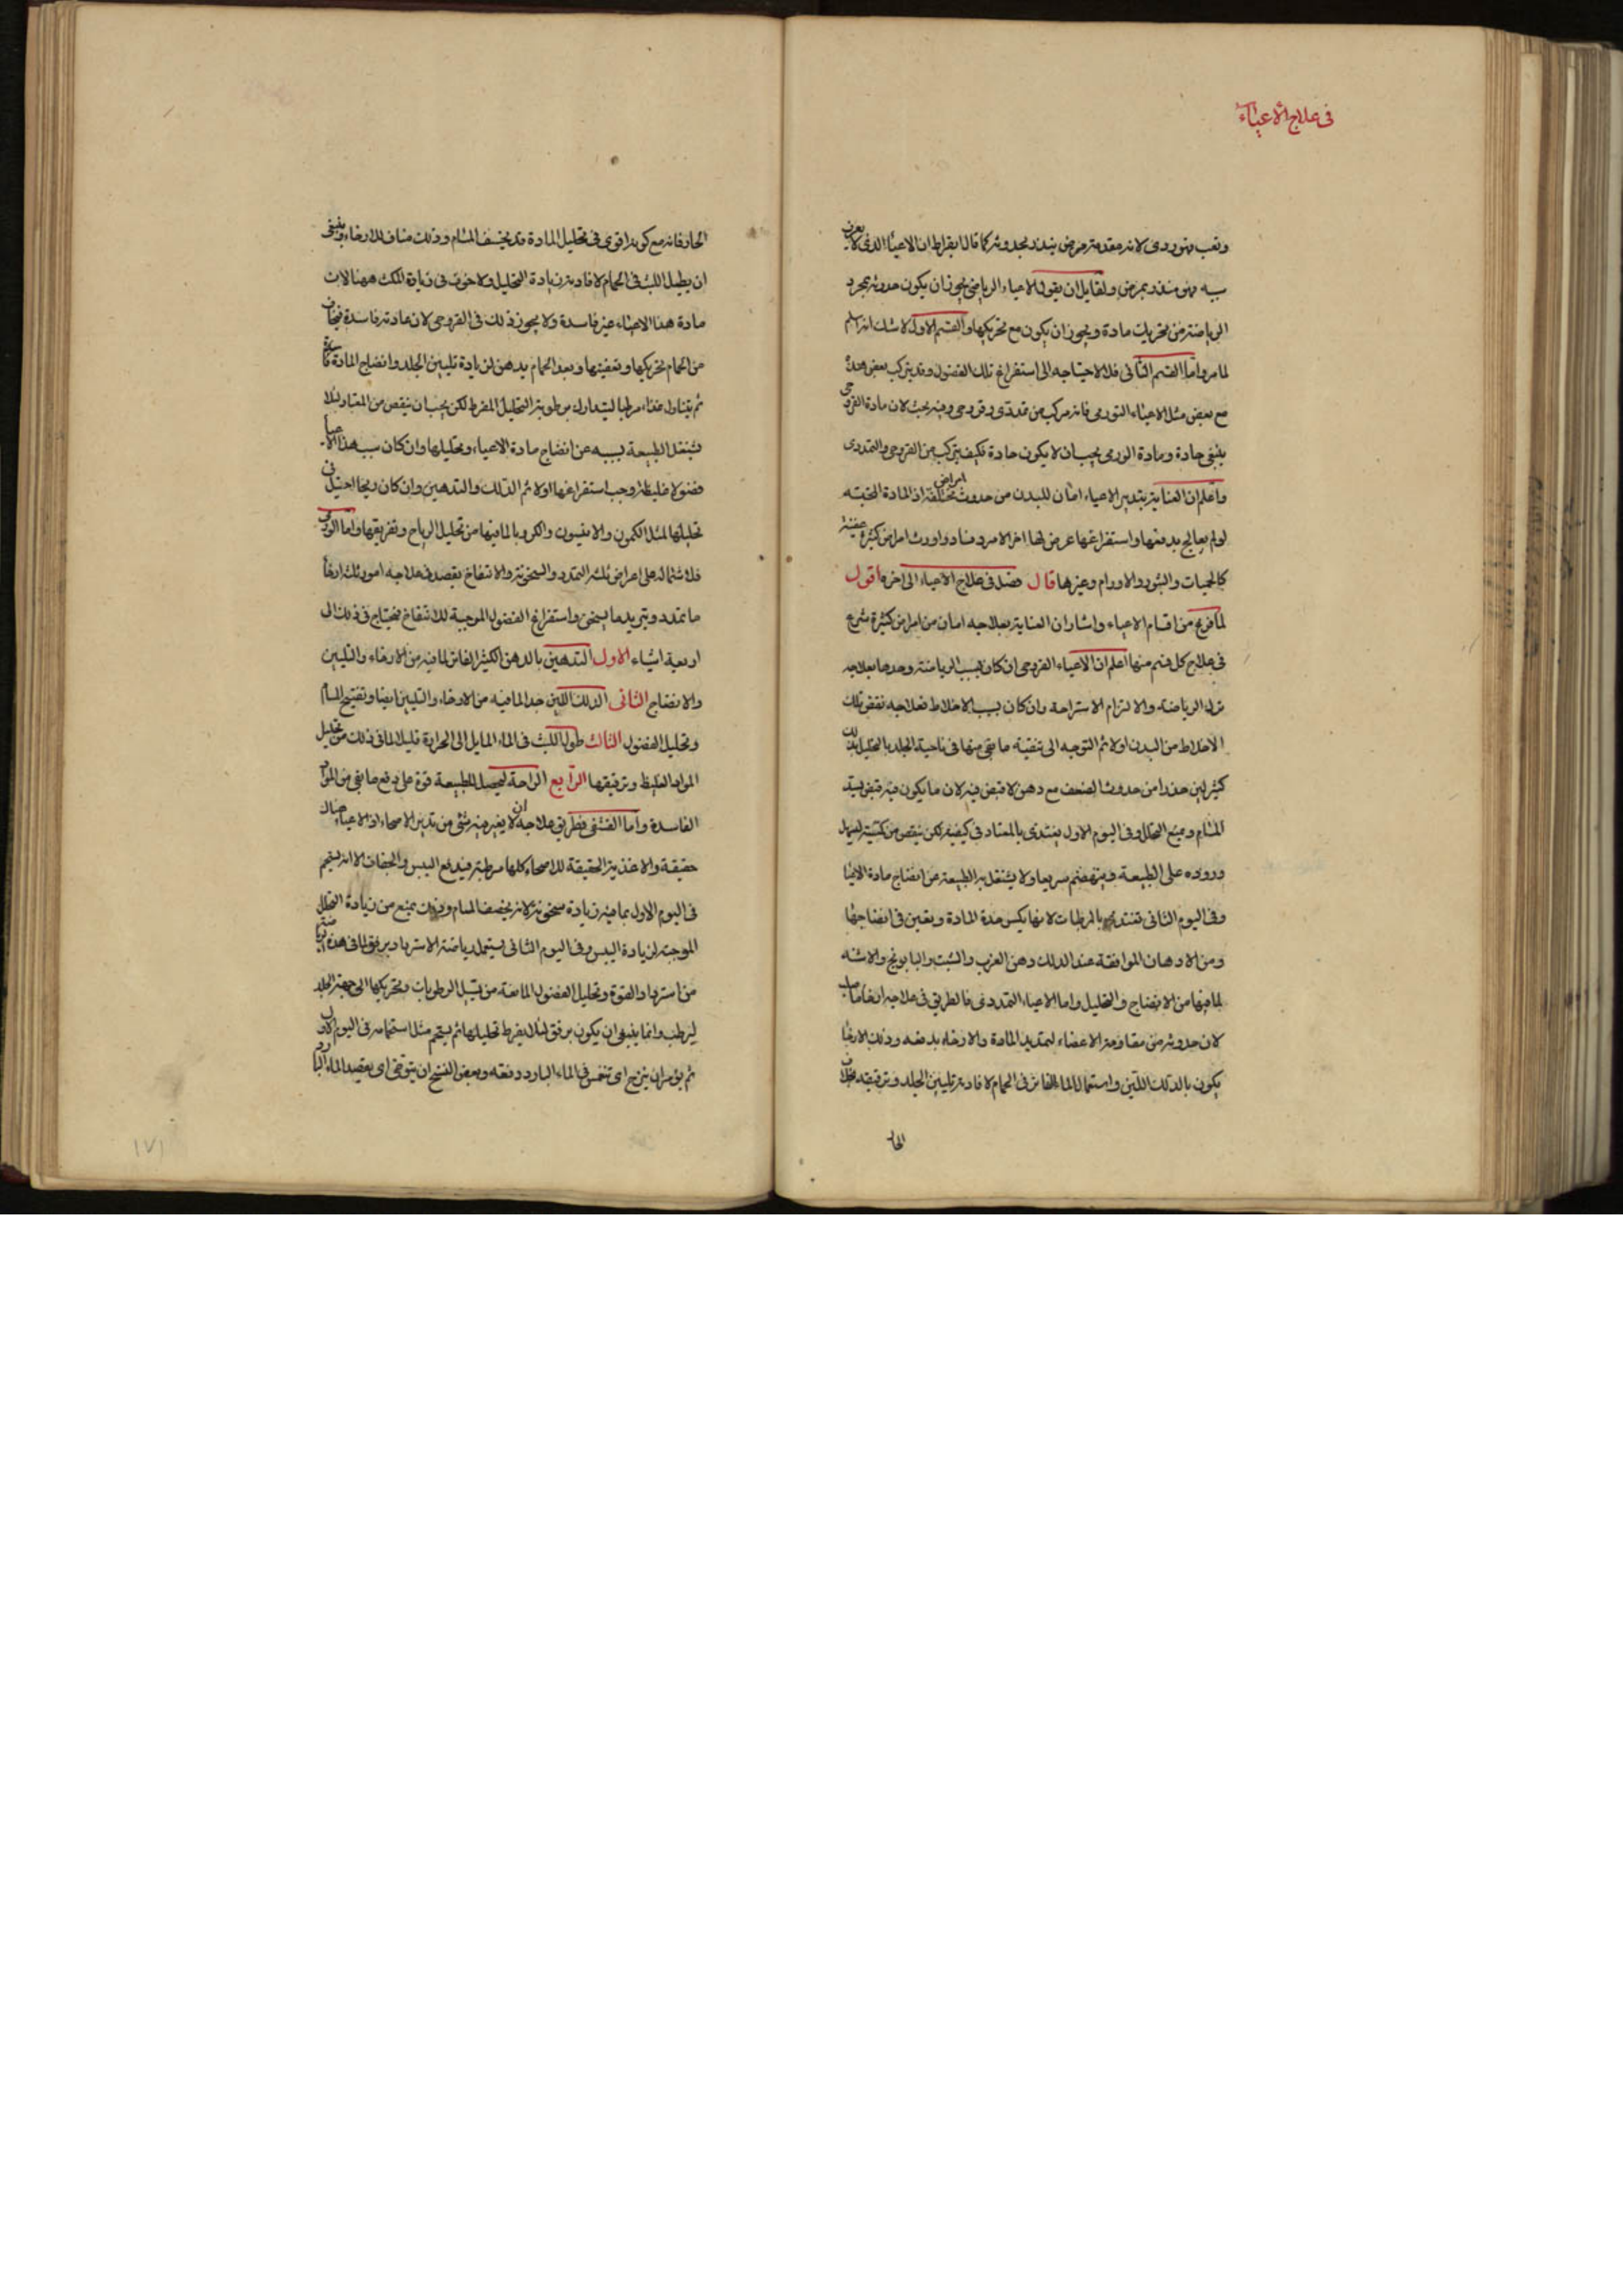 فى علاج الاعياء
وتعب فهو ردى لانه مقدمة مرض ينذر بحدوثه كما قال ابقراط ان الاعياء الذى لا يعرف
سببه فهو منذر بمرض ولقايل ان يقول الاعياء الرياضى يجوز ان يكون حدوثه بمجرد
الرياضة من تحريك مادة ويجوز ان يكون مع تحريكها والقسم الاول لا شك انه اسلم
لما مر واما القسم الثانى فلاحتياجه الى استفراغ تلك الفضول وقد يتركب بعض هذه
مع بعض مثل الاعياء التورمى فانه مركب من تمددى وقروحى وفيه بحث لان مادة القروحى
ينبغى حادة ومادة الورمى يجب ان لا يكون حادة فكيف يتركب من القروحى والتمددى
واعلم ان العناية بتدبير الاعياء امان للبدن من حدوث امراض مختلفة اذ المادة الخبيثه
لو لم يعالج بدفعها واستفراغها عرض لها اخر الامر فساد واورث امراض كثيرة عفنية
كالحميات والبثور والاورام وغيرها قال فصل فى علاج الاعياء الى اخره اقول
لما فرغ من اقسام الاعياء واشار ان العناية بعلاجه امان من امراض كثيرة شرع
فى علاج كل قسم منها اعلم ان الاعياء القروحى ان كان بسبب الرياضة وحدها بعلاجه
ترك الرياضة والالتزام الاستراحة وان كان بسبب الاخلاط فعلاجه نقص تلك
الاخلاط من البدن اولا ثم التوجه الى تنقية ما بقى منها فى ناحية الجلد بالتحليل بدلك
كثير لين حذرا من حدوث الضعف مع دهن لا قبض فيه لان ما يكون فيه قبض يسد
المسام ويمنع التحلل وفى اليوم الاول يغتذى بالمعتاد فى كيفيته لكن ينقص من كميته ليسهل
وروده على الطبيعة وينهضم سريعا ولا يشتغل به الطبيعة عن انضاج مادة الاعياء
وفى اليوم الثانى تغتذى بالمرطبات لانها يكسر حدة المادة ويعين فى انضاجها
ومن الادهان الموافقة عند الدلك دهن الغرب والشبت والبابونج والاشنه
لما فيها من الانضاج والتحليل واما الاعياء التمددى فالطريق فى علاجه ارخاء ما صلب
لان حدوثه من مقاومة الاعضاء لتمديد المادة والارخاء بدفعه وذلك الارخاء
يكون بالدلك اللين واستعمال الماء الفاتر فى الحمام لافادته تليين الجلد وترقيقه بخلاف
الحار
الحار فانه مع كونه اقوى فى تحليل المادة قد يخسف المسام وذلك مناف للارخاء وينبغى
ان يطيل اللبث فى الحمام لافادته زيادة التحليل ولا خوف فى زيادة المكث ههنا لان
مادة هذا الاعياء غير فاسدة ولا يجوز ذلك فى القروحى لان مادته فاسدة فيخاف
من الحمام تحريكها وتعفينها وبعد الحمام يدهن لزيادة تليين الجلد وانضاج المادة
ثم يتناول غذاء مرطبا ليتدارك برطوبته التحليل المفرط لكن يجب ان ينقص من المعتاد لئلا
تشتغل الطبيعة بسببه عن انضاج مادة الاعياء وتحليلها وان كان سبب هذا الاعياء
فضولا غليظا وجب استفراغها اولا ثم الدلك والتدهين وان كان ريحا احتيل فى
تحليلها لمثل الكمون والانيسون والكرويا لما فيها من تحليل الرياح وتفريقها واما الورمى
فلاشتماله على اعراض ثلثة التمدد والسخونة والانتفاخ يقصد فى علاجه امور ثلثة ارخاء
ما تمدد وتبريد ما يسخن واستفراغ الفضول الموجبة للانتفاخ فيحتاج فى ذلك الى
اربعة اشياء الاول التدهين بالدهن الكثير الفاتر لما فيه من الارخاء والتليين
والانضاج الثانى الدلك اللين جدا لما فيه من الارخاء والتليين ايضا وتفتيح المسام
وتحليل الفضول الثالث طول اللبث فى الماء المايل الى الحرارة قليلا لما فى ذلك من تحليل
المواد الغليظ وترقيقها الرابع الراحة ليحصل للطبيعة قوة على دفع ما بقى من المواد
الفاسدة واما القشفى فطريق علاجه ان لا يغير فيه شئ من تدبير الاصحاء اذ لا اعياء هناك
حقيقة والاغذية الحقيقة للاصحاء كلها مرطبة فيدفع اليبس والجفاف الا انه يستحم
فى اليوم الاول بما فيه زيادة سخونة لانه يخصف المسام وذلك يمنع من زيادة التحلل
الموجبة لزيادة اليبس وفى اليوم الثانى يستعمل رياضة الاسترداد برفق لما فى هذه الرياضة
من استرداد القوة وتحليل الفضول المانعة من تسيل الرطوبات وتحريكها الى جهة الجلد
ليرطب وانما ينبغى ان يكون برفق لئلا يفرط تحليلها ثم يستحم مثل استحمامه فى اليوم الاول
ثم يؤمر ان يتزج اى تنغمس فى الماء البارد دفعه وبعض النسخ ان يتوخى اى يقصد الماء البارد
١٧١